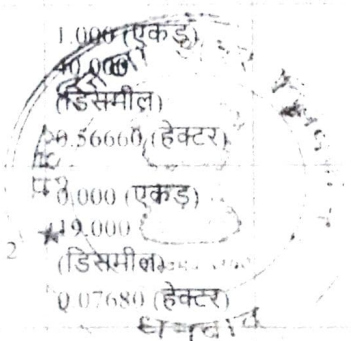 1.000 (एकड़)
40.000
(डिसमील)
0.56660 (हेक्टर)
0.000 (एकड़)
19.000
2
(डिसमील)
0.07680 (हेक्टर)
धनबाद